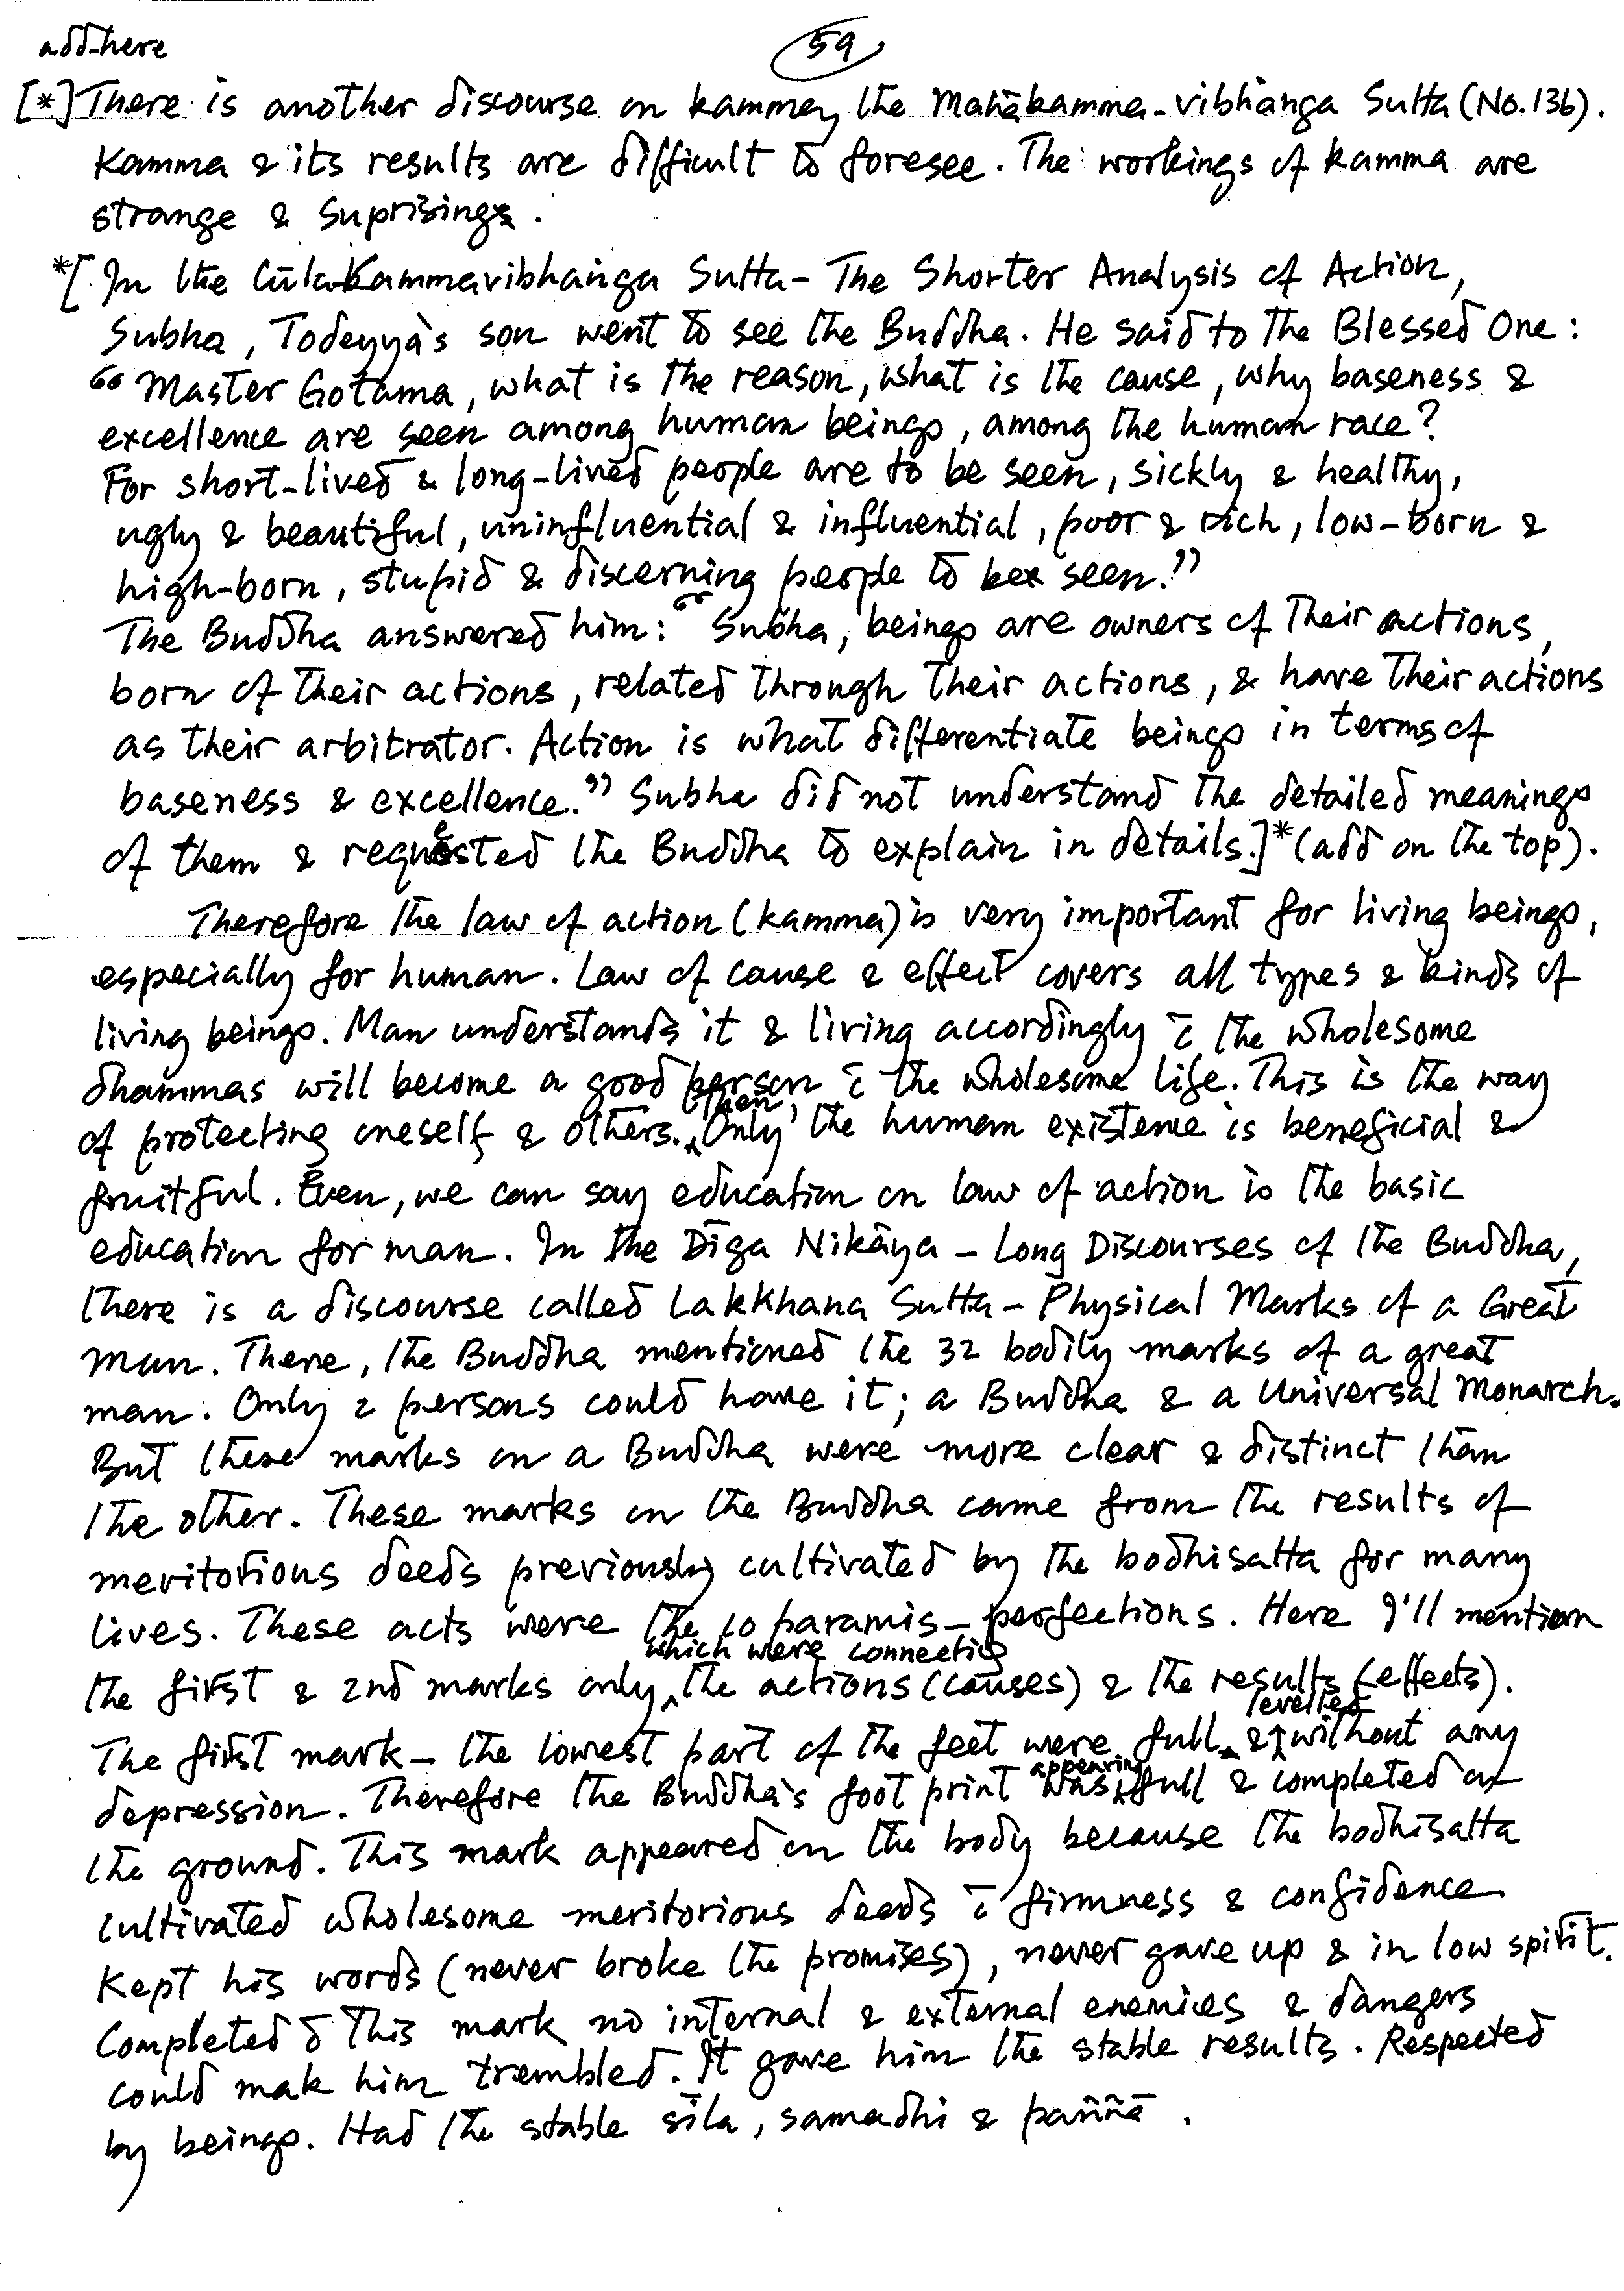 add-here
59
[*] There is another discourse on kamma, the Mahākamma-vibhaṅga Sutta (No.136).
Kamma & its results are difficult to foresee. The workings of kamma are
strange & suprising.
*[ In the Cūla-Kammavibhaṅga Sutta – The Shorter Analysis of Action,
Subha, Todeyya's son went to see the Buddha. He said to the Blessed One:
"Master Gotama, what is the reason, what is the cause, why baseness &
excellence are seen among human beings, among the human race?
For short-lived & long-lived people are to be seen, sickly & healthy,
ugly & beautiful, uninfluential & influential, poor & rich, low-born &
high-born, stupid & discerning people to be seen."
The Buddha answered him: "Subha, beings are owners of their actions,
born of their actions, related through their actions, & have their actions
as their arbitrator. Action is what differentiate beings in terms of
baseness & excellence." Subha did not understand the detailed meanings
of them & requested the Buddha to explain in details.]* (add on the top).
Therefore the law of action (kamma) is very important for living beings,
especially for human. Law of cause & effect covers all types & kinds of
living beings. Man understands it & living accordingly c̄ the wholesome
dhammas will become a good person c̄ the wholesome life. This is the way
of protecting oneself & others. Only then, the human existence is beneficial &
fruitful. Even, we can say education on law of action is the basic
education for man. In the Dīga Nikāya – Long Discourses of the Buddha,
there is a discourse called Lakkhana Sutta – Physical Marks of a Great
man. There, the Buddha mentioned the 32 bodily marks of a great
man. Only 2 persons could have it; a Buddha & a Universal Monarch.
But these marks on a Buddha were more clear & distinct than
the other. These marks on the Buddha came from the results of
meritorious deeds previously cultivated by the bodhisatta for many
lives. These acts were the 10 paramis – perfections. Here I'll mention
the first & 2nd marks only which were connecting the actions (causes) & the results (effects).
The first mark – the lowest part of the feet were full & levelled without any
depression. Therefore the Buddha's foot print was appearing full & completed on
the ground. This mark appeared on the body because the bodhisatta
cultivated wholesome meritorious deeds c̄ firmness & confidence
Kept his words (never broke the promises), never gave up & in low spirit.
Completed c̄ this mark no internal & external enemies & dangers
could mak him trembled. It gave him the stable results. Respected
by beings. Had the stable sīla, samadhi & paññā.